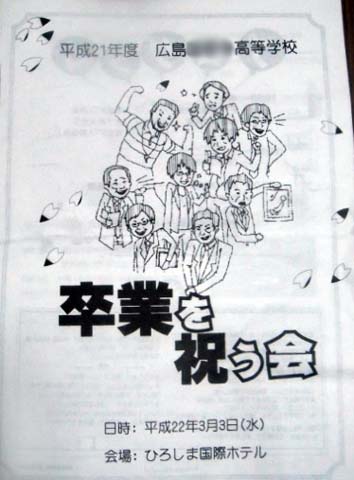 平成21年度 広島 高等学校
卒業を
祝う会
日時：平成22年3月3日(水)
会場：ひろしま国際ホテル